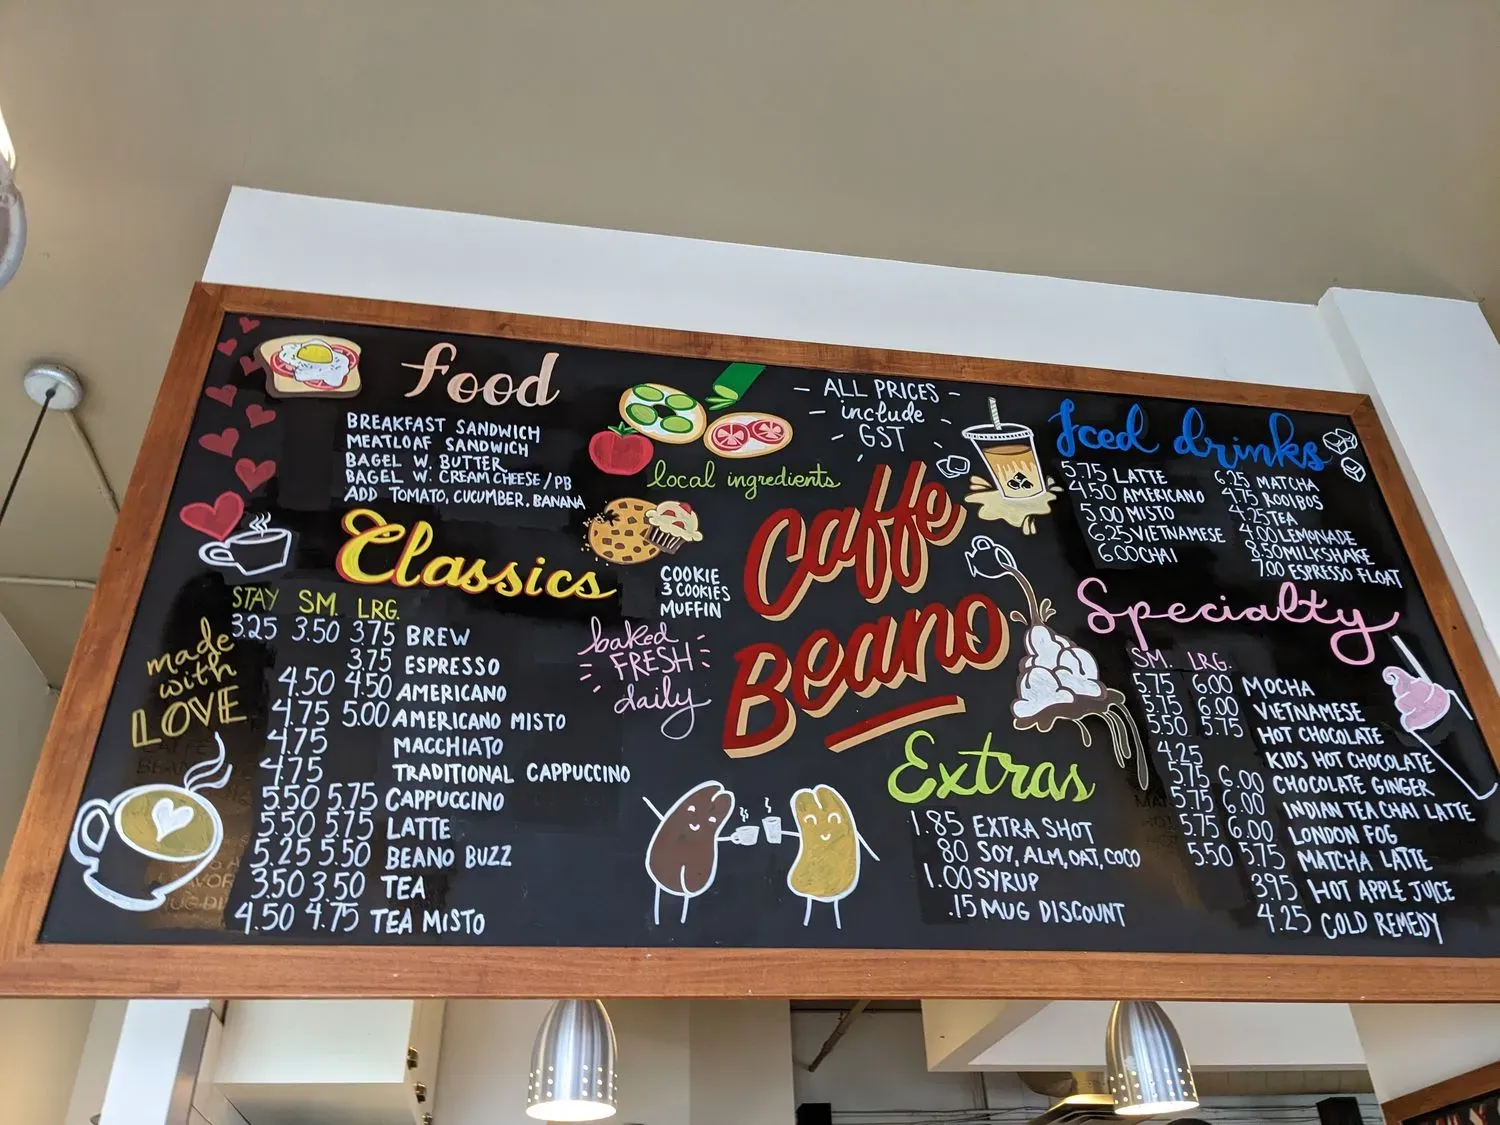 Food
BREAKFAST SANDWICH
MEATLOAF SANDWICH
BAGEL W. BUTTER
BAGEL W. CREAM CHEESE / PB
ADD TOMATO, CUCUMBER, BANANA
local ingredients
- ALL PRICES -
- include -
GST
Caffe
Beano
Classics
STAY SM. LRG.
3.25 3.50 3.75 BREW
3.75 ESPRESSO
4.50 4.50 AMERICANO
4.75 5.00 AMERICANO MISTO
4.75 MACCHIATO
4.75 TRADITIONAL CAPPUCCINO
5.50 5.75 CAPPUCCINO
5.50 5.75 LATTE
5.25 5.50 BEANO BUZZ
3.50 3.50 TEA
4.50 4.75 TEA MISTO
made
with
LOVE
COOKIE
3 COOKIES
MUFFIN
baked
FRESH
daily
Extras
1.85 EXTRA SHOT
80 SOY, ALM, OAT, COCO
1.00 SYRUP
.15 MUG DISCOUNT
Iced drinks
5.75 LATTE
4.50 AMERICANO
5.00 MISTO
6.25 VIETNAMESE
6.00 CHAI
6.25 MATCHA
4.75 ROOIBOS
4.25 TEA
4.00 LEMONADE
8.50 MILKSHAKE
7.00 ESPRESSO FLOAT
Specialty
SM. LRG.
5.75 6.00 MOCHA
5.75 6.00 VIETNAMESE
5.50 5.75 HOT CHOCOLATE
4.25 KIDS HOT CHOCOLATE
5.75 6.00 CHOCOLATE GINGER
5.75 6.00 INDIAN TEA CHAI LATTE
5.75 6.00 LONDON FOG
5.50 5.75 MATCHA LATTE
3.95 HOT APPLE JUICE
4.25 COLD REMEDY